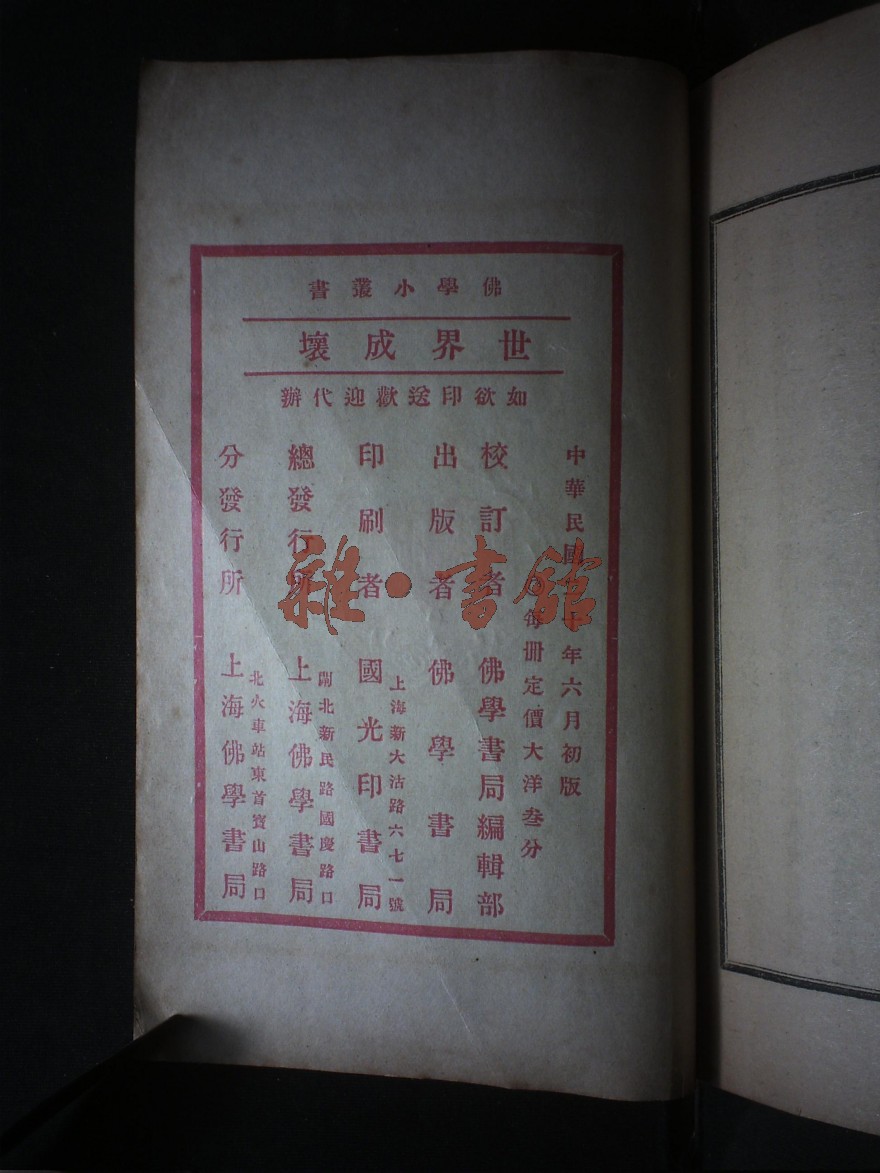 佛學小叢書
世界成壞
如欲印送歡迎代辦
中華民國 十年六月初版
每册定價大洋叁分
校訂者 佛學書局編輯部
出版者 佛學書局
上海新大沽路六七一號
印刷者 國光印書局
閘北新民路國慶路口
總發行所 上海佛學書局
北火車站東首寶山路口
分發行所 上海佛學書局
雜·書館